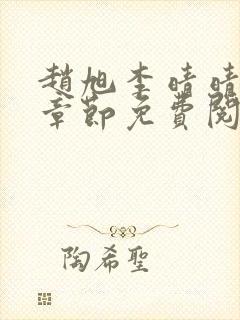 趙旭李晴晴
章節免費閱
陶希聖